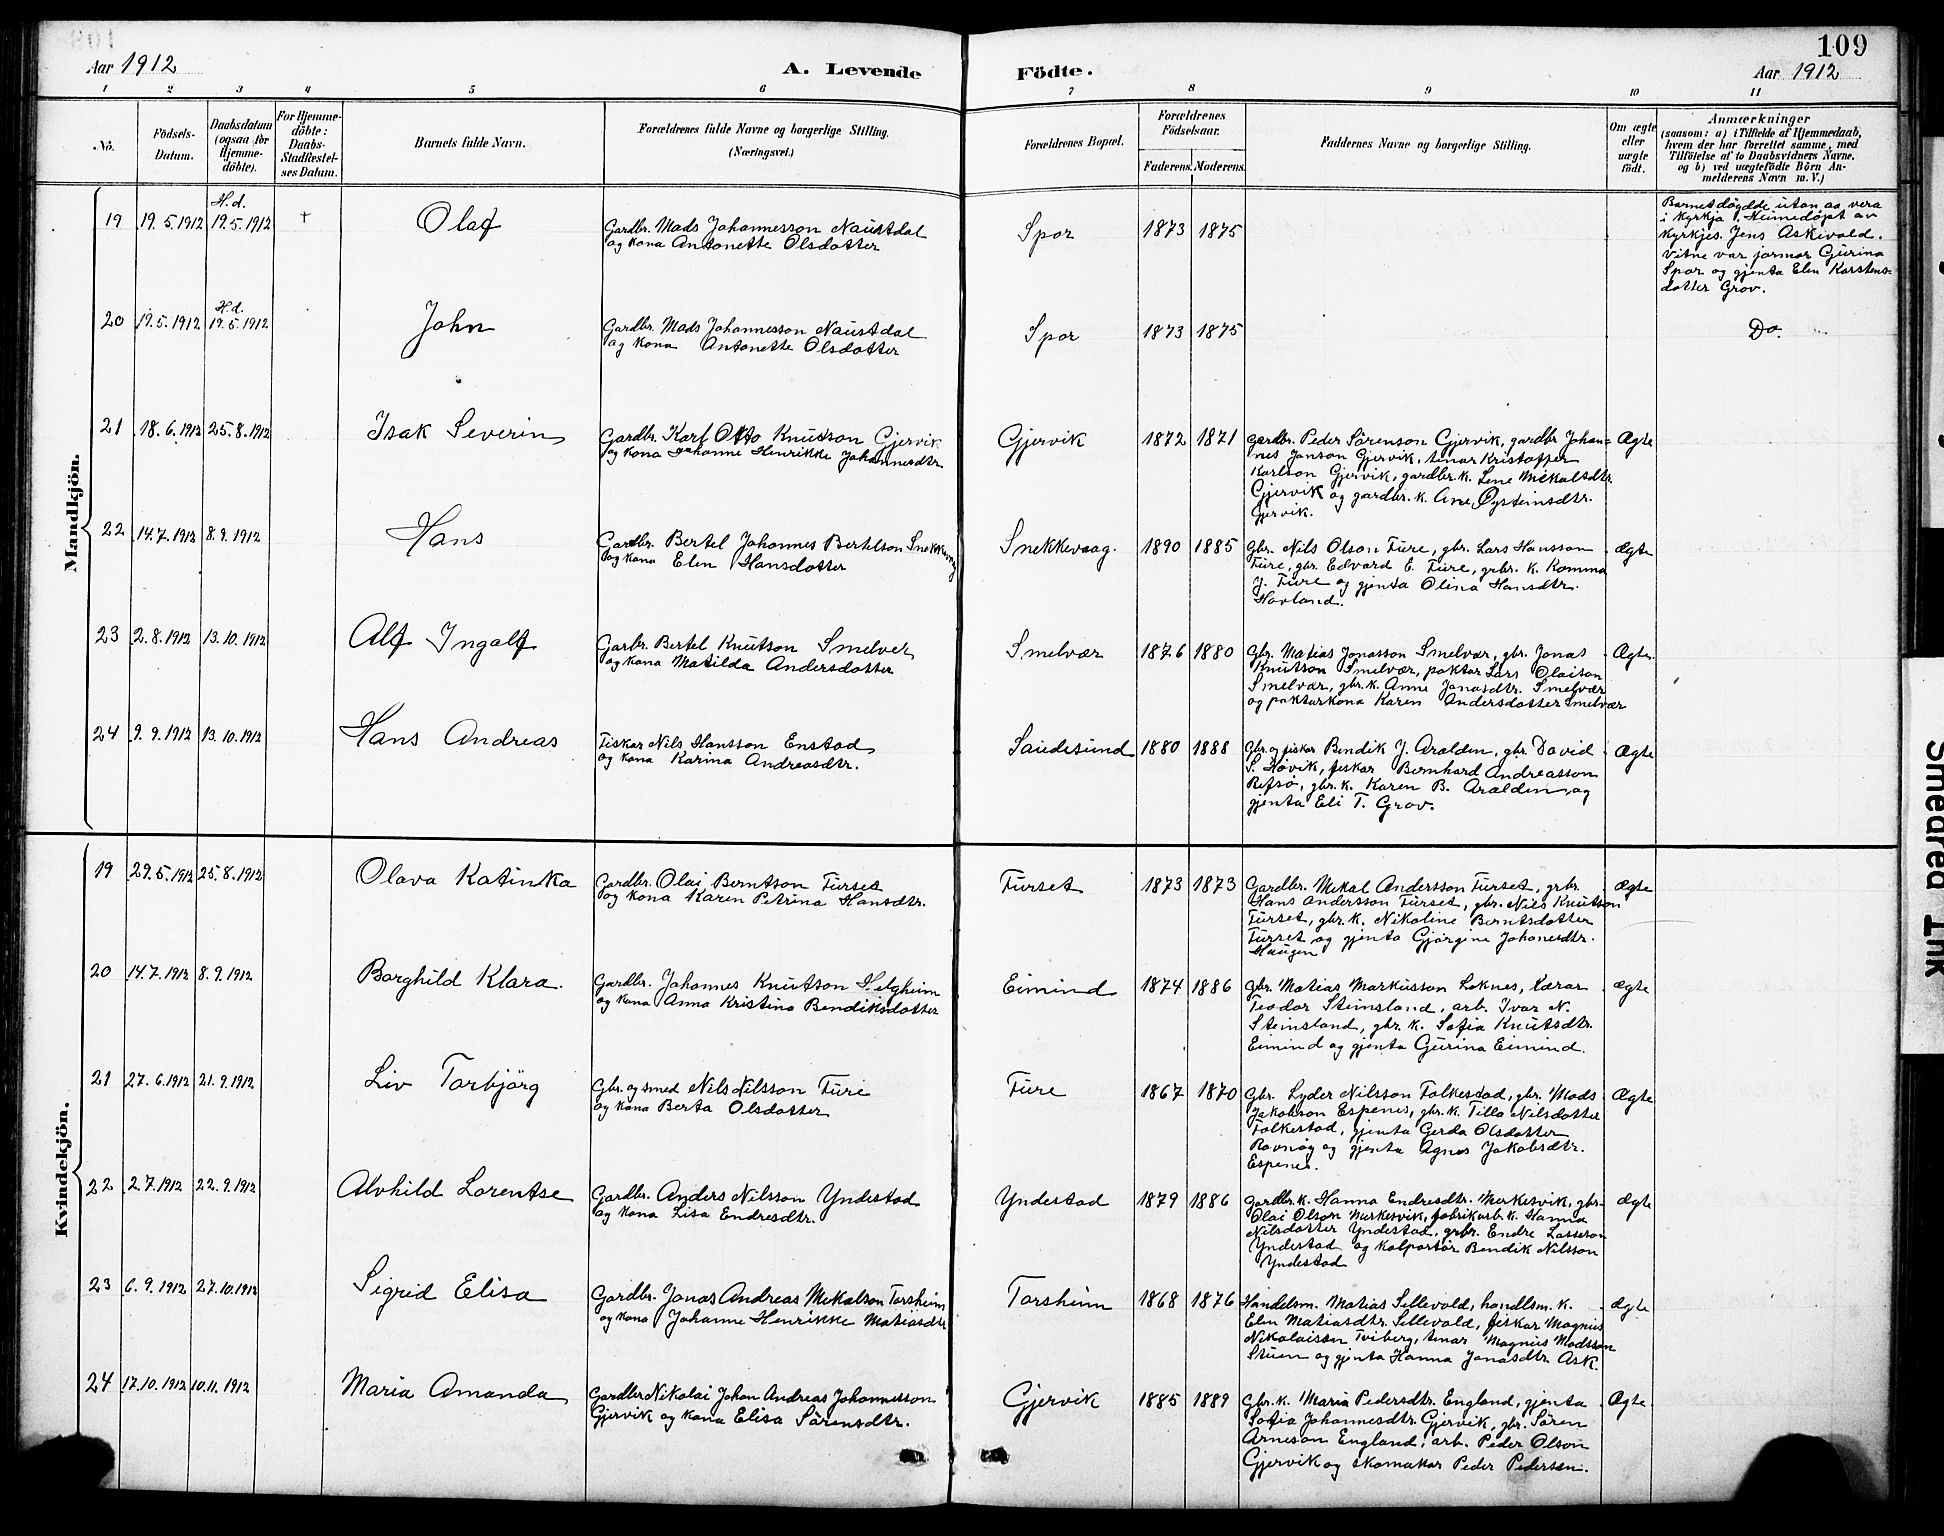 109
Aar 1912
A. Levende
Födte.
Aar 1912
1 2 3 4 5 6 7 8 9 10 11
Nō.
Födsels-
Datum.
Daabsdatum
(ogsaa for
Hjemme-
döbte).
For Hjemme-
döbte:
Daabs-
Stadfæstel-
ses Datum.
Barnets fulde Navn.
Forældrenes fulde Navne og borgerlige Stilling.
(Næringsvei.)
Forældrenes Bopæl.
Forældrenes
Födselsaar.
Faderens. Moderens.
Faddernes Navne og borgerlige Stilling.
Om ægte
eller
uægte
födt.
Anmærkninger
(saasom: a) i Tilfælde af Hjemmedaab,
hvem der har forrettet samme, med
Tilföielse af to Daabsvidners Navne,
og b) ved uægtefödte Börn An-
melderens Navn m. V.)
Mandkjön.
19 19.5.1912 H.d. 19.5.1912 + Olaf
Gardbr. Mads Johannesson Naustdal
og kona Antonette Olsdotter
Spor 1873 1875
Barnet döydde utan aa vera
i kyrkja. Heimedöpt av
Kyrkjes. Jens Askevold.
Vitne var jormor Gurina
Spor og gjenta Elen Karstens-
dotter Grov.
20 19.5.1912 H.d. 19.5.1912 John
Gardbr. Mads Johannesson Naustdal
og kona Antonette Olsdotter
Spor 1873 1875
Do.
21 18.6.1912 25.8.1912 Isak Severin
Gardbr. Karl Otto Knutson Gjervik
og kona Johanne Henrikke Johannesdtr.
Gjervik 1872 1871
Gardbr. Peder Sörenson Gjervik, gardbr. Johan-
nes Janson Gjervik, tenar Kristoffer
Karlson Gjervik, gardbr. k. Lene Mikalsdtr.
Gjervik og gardbr. k. Ane Öysteinsdtr.
Gjervik.
Ægte
22 14.7.1912 8.9.1912 Hans
Gardbr. Bertel Johannes Bertelson Snekkevaag
og kona Elen Hansdotter
Snekkevaag. 1890 1885
Gbr. Nils Olson Fure, gbr. Lars Hansson
Fure, gbr. Edvard E. Fure, grbr. k. Komma
J. Fure og gjenta Olina Hansdtr.
Hovland.
Ægte
23 2.8.1912 13.10.1912 Alf Ingolf
Garbr. Bertel Knutson Smelver
og kona Matilda Andersdotter
Smelvær 1876 1880
Gbr. Matias Jonasson Smelvær, gbr. Jonas
Knutson Smelvær, paktar Lars Olaison
Smelvær, gbr. k. Anne Jonasdtr. Smelvær
og paktarkona Karen Andersdotter Smelvær
Ægte.
24 9.9.1912 13.10.1912 Hans Andreas
Fiskar Nils Hansson Enstad
og kona Karina Andreasdtr.
Saudesund 1880 1888
Gbr. og fiskar Bendik J. Aralden, gbr. David
S. Hövik, fiskar Bernhard Andreasson
Refsö, gbr. k. Karen B. Aralden, og
gjenta Eli T. Grov.
Ægte
Kvindekjön.
19 29.5.1912 25.8.1912 Olava Katinka
Gardbr. Olai Berntson Furset
og kona Karen Petrina Hansdtr.
Furset 1873 1873
Gardbr. Mikal Andersson Furset, grbr.
Hans Andersson Furset, gbr. Nils Knutson
Furset, gbr. k. Nikoline Berntsdotter
Furset og gjenta Gjörgine Johanesdtr.
Haugen
Ægte
20 14.7.1912 8.9.1912 Borghild Klara.
Gardbr. Johannes Knutson Helgheim
og kona Anna Kristina Bendiksdotter
Eimind 1874 1886
Gbr. Matias Markusson Loknes, lærar
Teodor Steinsland, arb. Ivar N.
Steinsland, gbr. k. Sofia Knutsdtr.
Eimind og gjenta Gurina Eimind.
Ægte
21 27.6.1912 21.9.1912 Liv Torbjörg
Gbr. og smed Nils Nilsson Fure
og kona Berta Olsdotter
Fure 1867 1870
Gbr. Lyder Nilsson Folkestad, gbr. Mads
Jakobson Espenes, gbr. k. Tilla Nilsdotter
Folkestad, gjenta Gerda Olsdotter
Ravnöy og gjenta Agnes Jakobsdtr.
Espenes.
Ægte
22 2.7.1912 22.9.1912 Alvhild Lorentse
Gardbr. Anders Nilsson Yndestad
og kona Lisa Endresdtr.
Yndestad 1879 1886
Gardbr. k. Hanna Endresdtr. Merkesvik, gbr.
Olai Olson Merkesvik, fabrikarb. k. Hanna
Nilsdotter Yndestad, grbr. Endre Lasseson
Yndestad og kolportör Bendik Nilsson
Yndestad
Ægte
23 6.9.1912 27.10.1912 Sigrid Elisa
Gardbr. Jonas Andreas Mikalson Torsheim
og kona Johanne Henrikke Matiasdtr
Torsheim 1868 1876
Handelsm. Matias Sellevold, handlsm. k.
Elen Matiasdtr. Sellevold, fiskar Magnus
Nikolaison Tviberg, tenar Magnus Madsson
Stuen og gjenta Hanna Jonasdtr. Ask
Ægte
24 17.10.1912 10.11.1912 Maria Amanda
Gardbr Nikolai Johan Andreas Johannesson
Gjervik og kona Elisa Sörensdtr.
Gjervik 1885 1889
Gbr. k. Maria Pedersdtr. England, gjenta
Sofia Johannesdtr. Gjervik, gbr. Sören
Arneson England, arb. Peder Olson
Gjervik og skomakar Peder Pedersen.
Ægte.
Smeared Ink